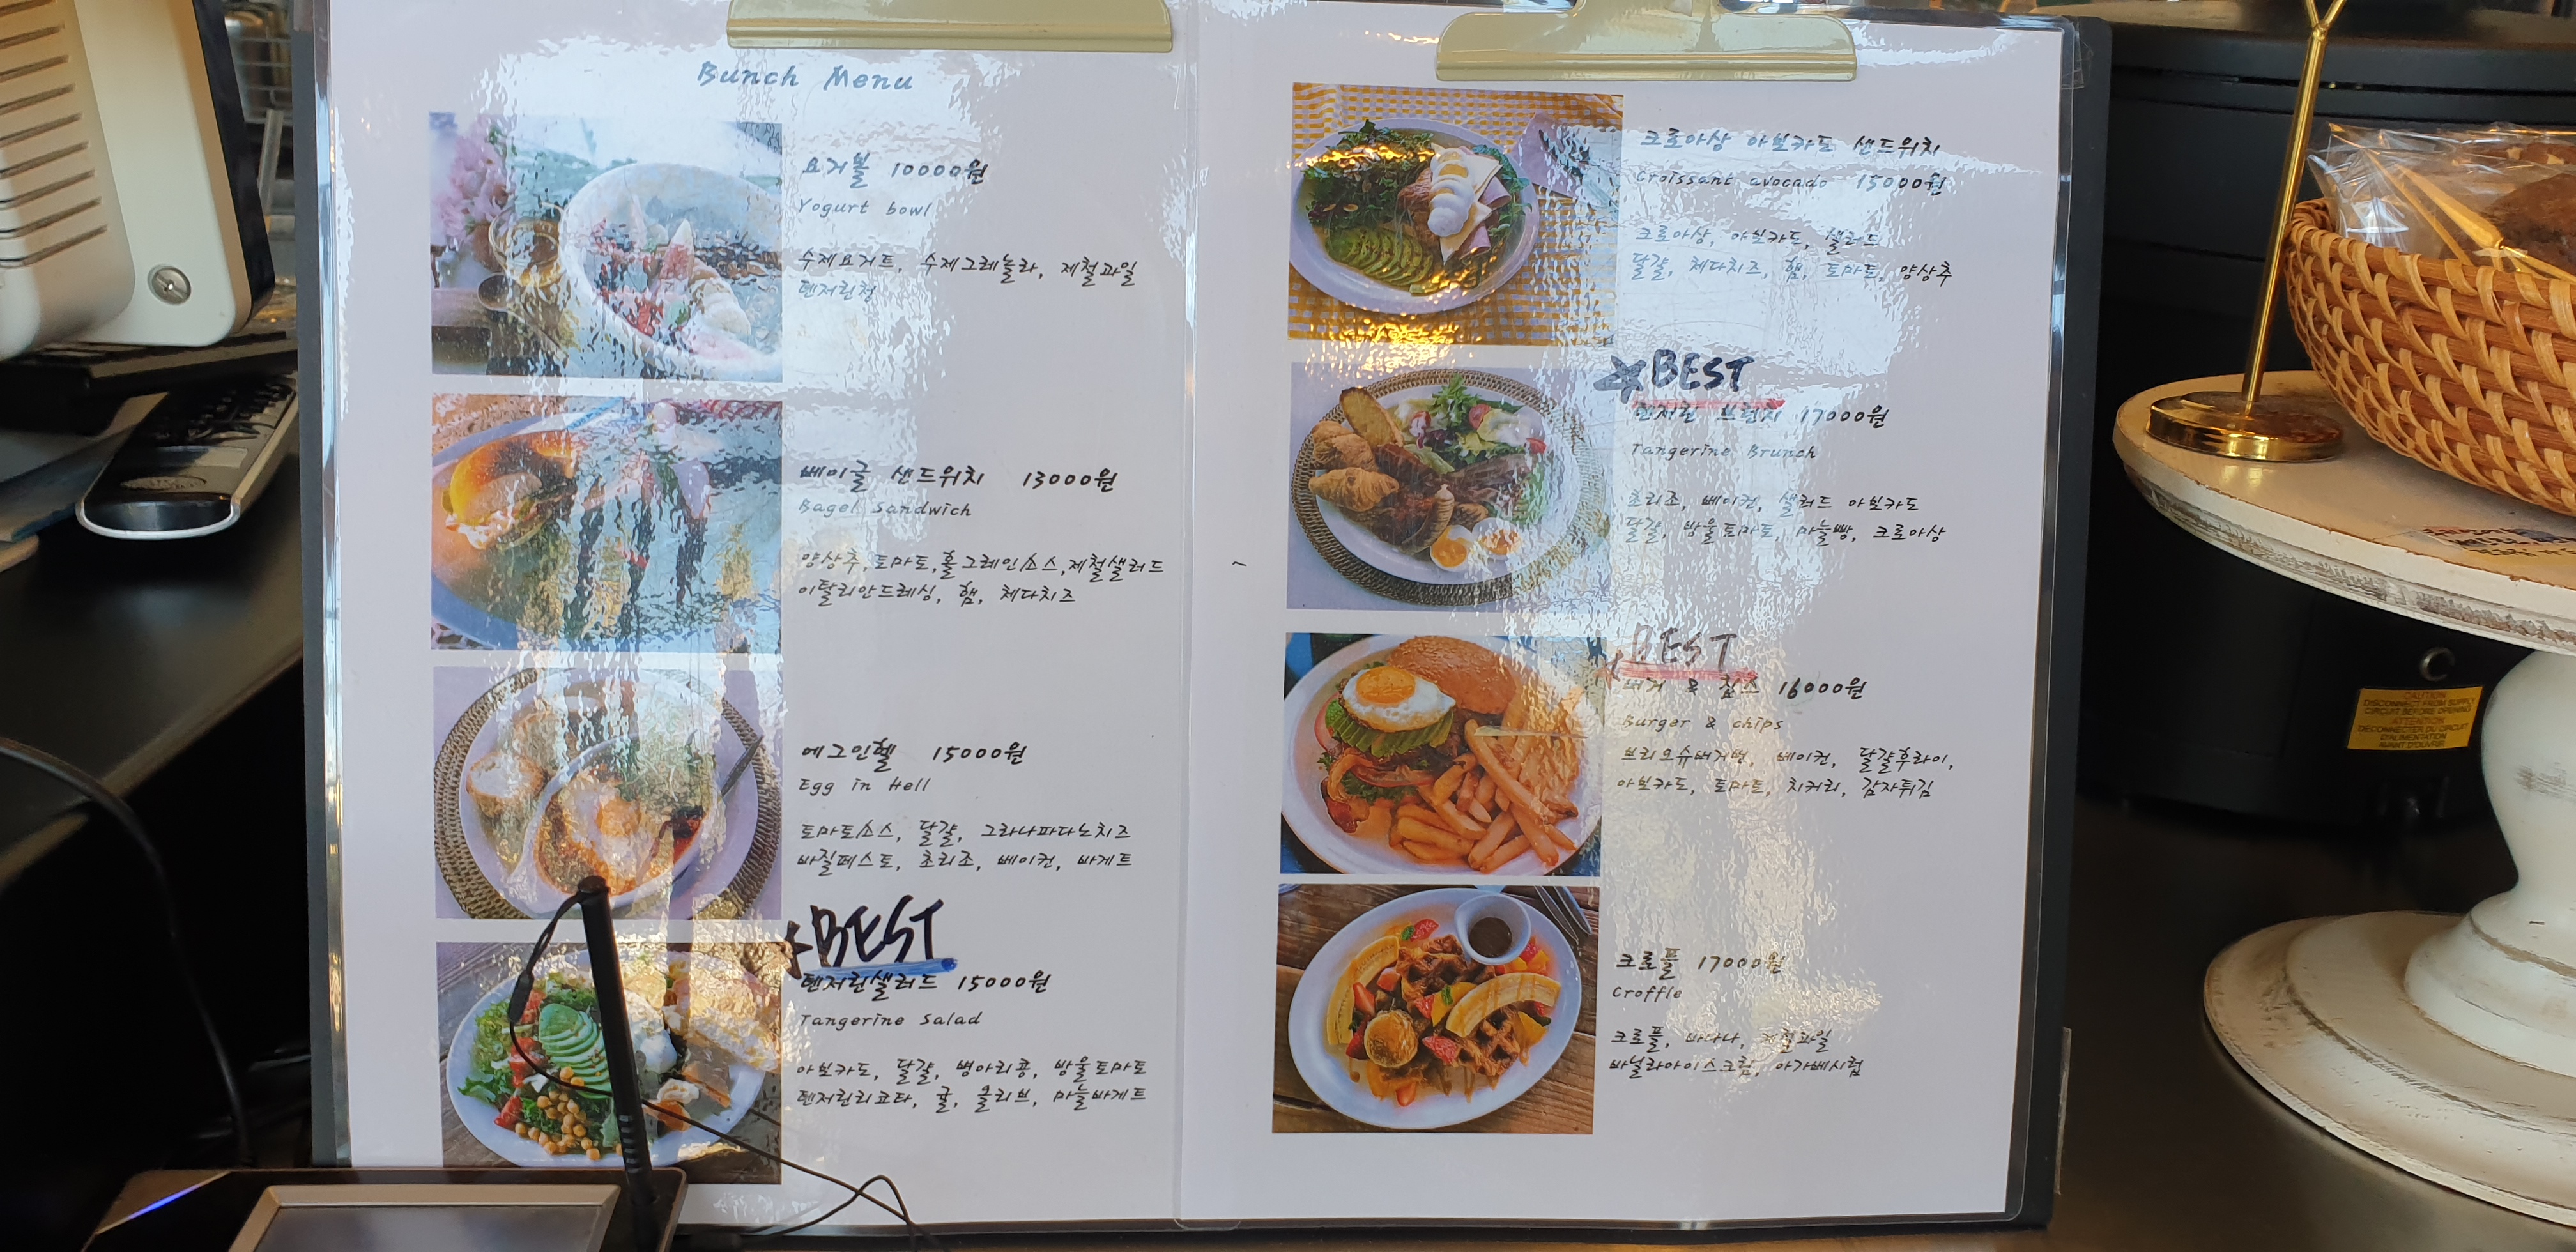 Bunch Menu
요거볼 10000원
Yogurt bowl
수제요거트, 수제그레놀라, 제철과일
텐저린청
베이글 샌드위치 13000원
Bagel Sandwich
양상추,토마토,홀그레인소스,제철샐러드
이탈리안드레싱, 햄, 체다치즈
에그인헬 15000원
Egg in Hell
토마토소스, 달걀, 그라나파다노치즈
바질페스토, 초리조, 베이컨, 바게트
BEST
텐저린샐러드 15000원
Tangerine Salad
아보카도, 달걀, 병아리콩, 방울토마토
텐저린리코타, 귤, 올리브, 마늘바게트
크로아상 아보카도 샌드위치
Croissant avocado 15000원
크로아상, 아보카도, 샐러드
달걀, 체다치즈, 햄, 토마토, 양상추
BEST
텐저린 브런치 17000원
Tangerine Brunch
초리조, 베이컨, 샐러드 아보카도
달걀, 방울토마토, 마늘빵, 크로아상
BEST
버거 & 칩스 16000원
Burger & chips
브리오슈버거번, 베이컨, 달걀후라이,
아보카도, 토마토, 치커리, 감자튀김
크로플 17000원
Croffle
크로플, 바나나, 제철과일
바닐라아이스크림, 아가베시럽
CAUTION
DISCONNECT FROM SUPPLY
CIRCUIT BEFORE OPENING
ATTENTION
DECONNECTER DU CIRCUIT
D'ALIMENTATION
AVANT D'OUVRIR